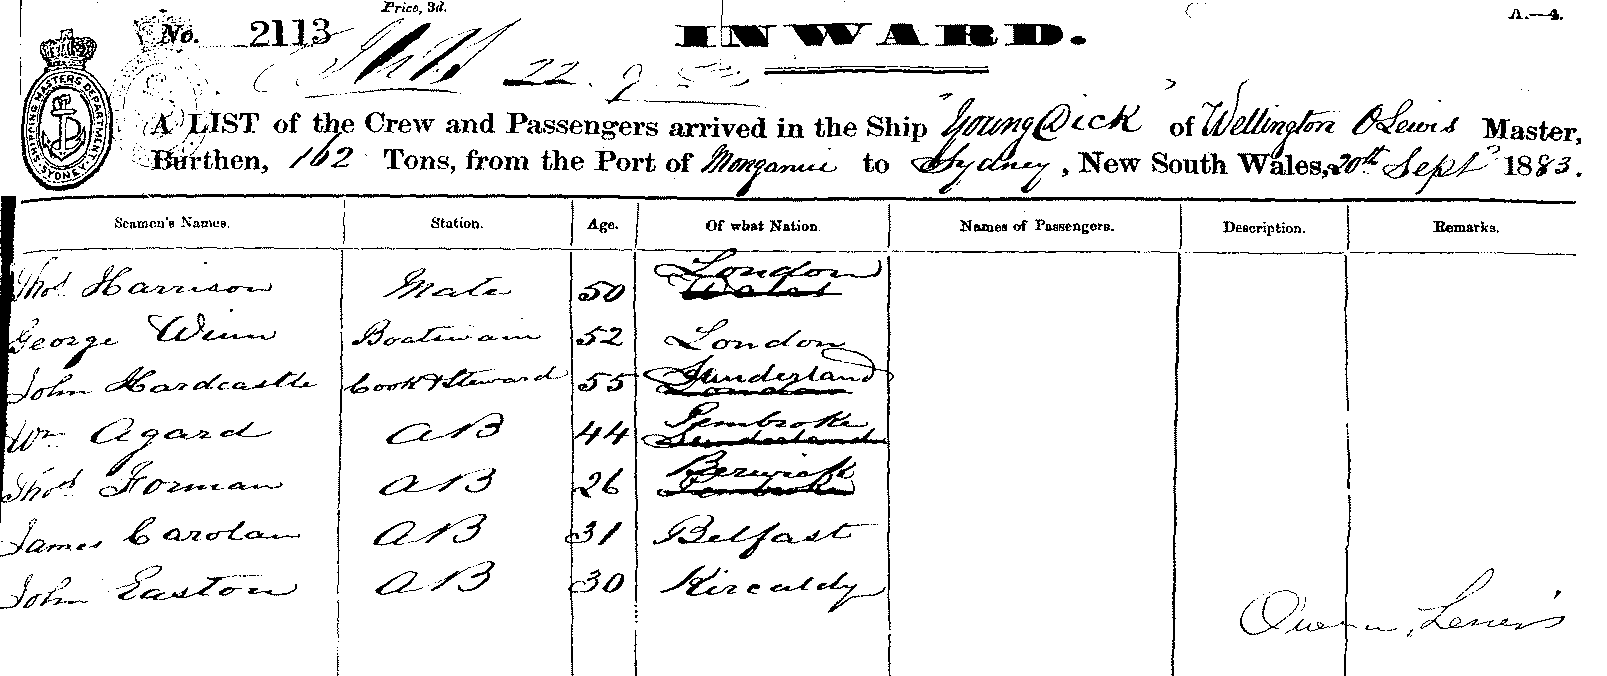 Price, 3d.
A.—4.
No. 2113
INWARD.
22. 9
SHIPPING MASTERS DEPARTMENT SYDNEY
A LIST of the Crew and Passengers arrived in the Ship "Young Dick" of Wellington O Lewis Master,
Burthen, 162 Tons, from the Port of to Sydney, New South Wales, 20th Sept 1883.
Seamen's Names. Station. Age. Of what Nation. Names of Passengers. Description. Remarks.
Thos Harrison Mate 50 London Wales
George Winn Boatswain 52 London
John Hardcastle Cook & Steward 55 Sunderland London
Wm Agard AB 44 Pembroke Sunderland
Thos Forman AB 26 Berwick Pembroke
James Carolan AB 31 Belfast
John Easton AB 30 Kircaldy
Owen Lewis